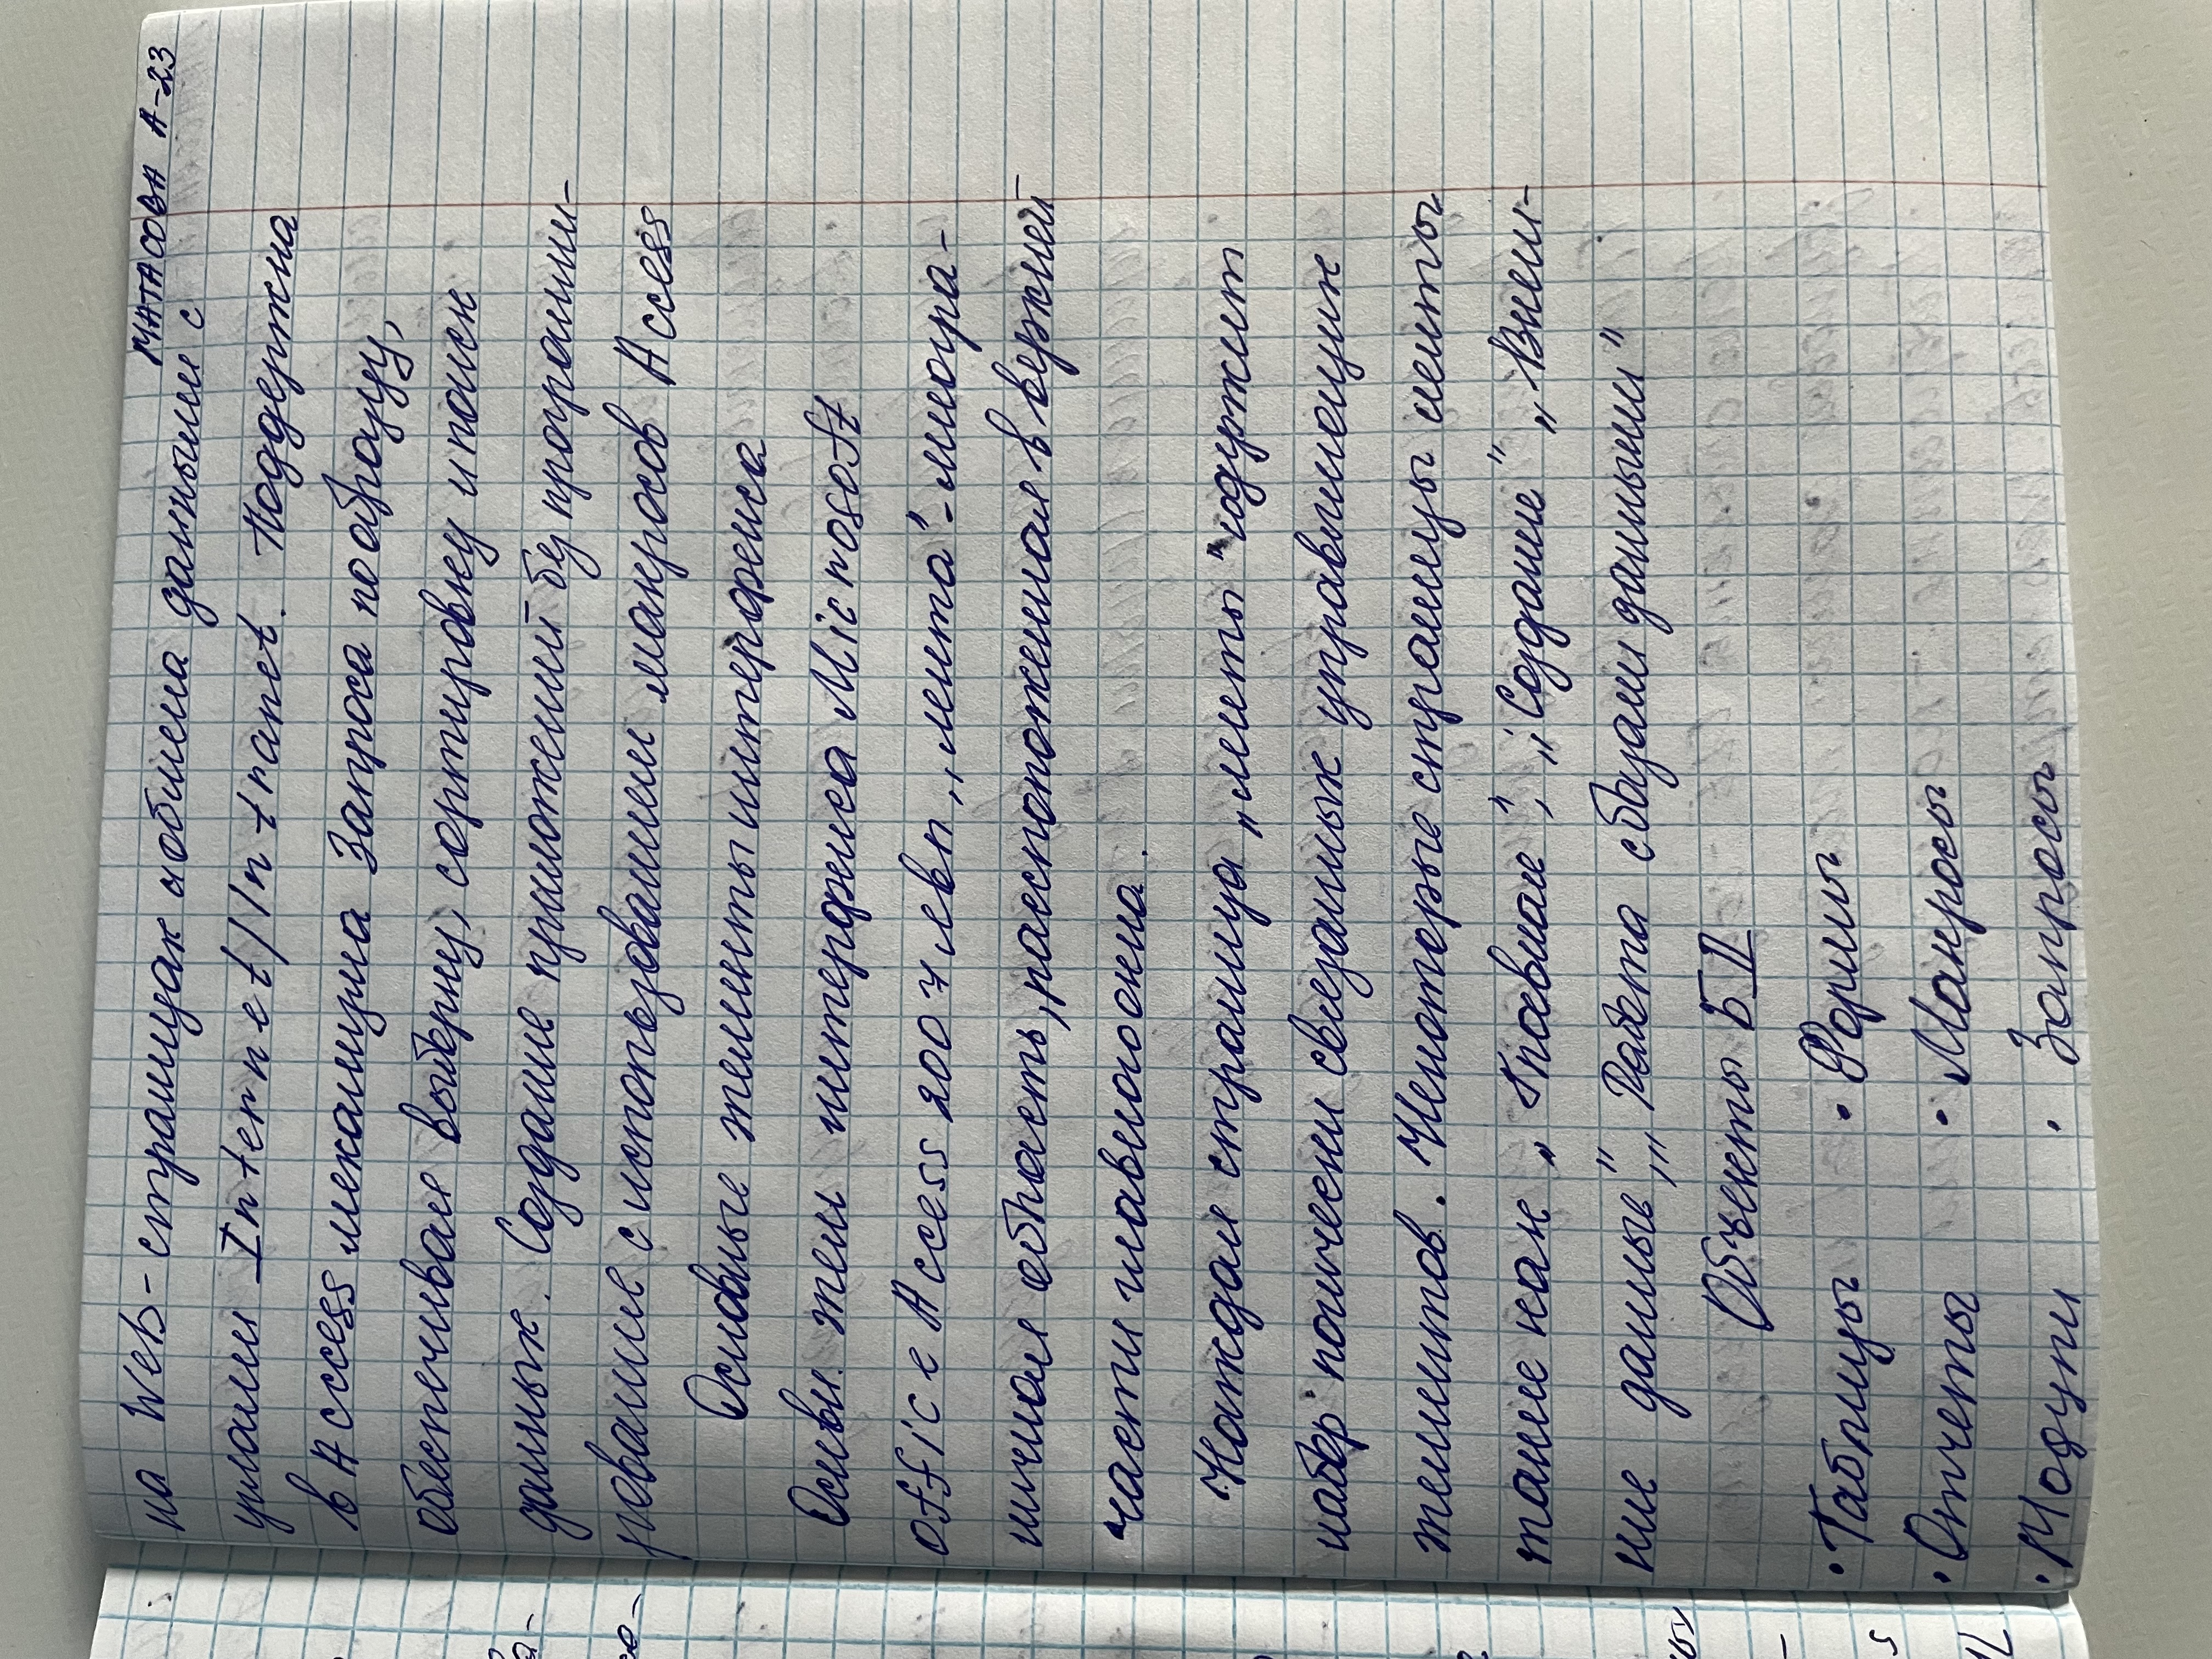 МАТАСОВА А-23
на Web-страницах и обмена данными с
узлами Internet/Intranet. Поддержка
в Access механизма Запроса по образцу,
обеспечивая выборку, сортировку и поиск
данных. Создание приложений без программи-
рование с использованием макросов Access
Основные элементы интерфейса
Основн. элем интерфейса Microsoft
Office Access 2007 явл „лента"-многра-
ничная область, расположенная в верхней
части главного окна.
Каждая страница „ленты" содержит
набор логически связанных управляющих
элементов. Некоторые страницы ленты
такие как „Главная", „Создание", „Внеш-
ние данные", „Работа с базами данными"
Объекты БД
• Таблицы • Формы
• Отчеты • Макросы
• Модули • Запросы